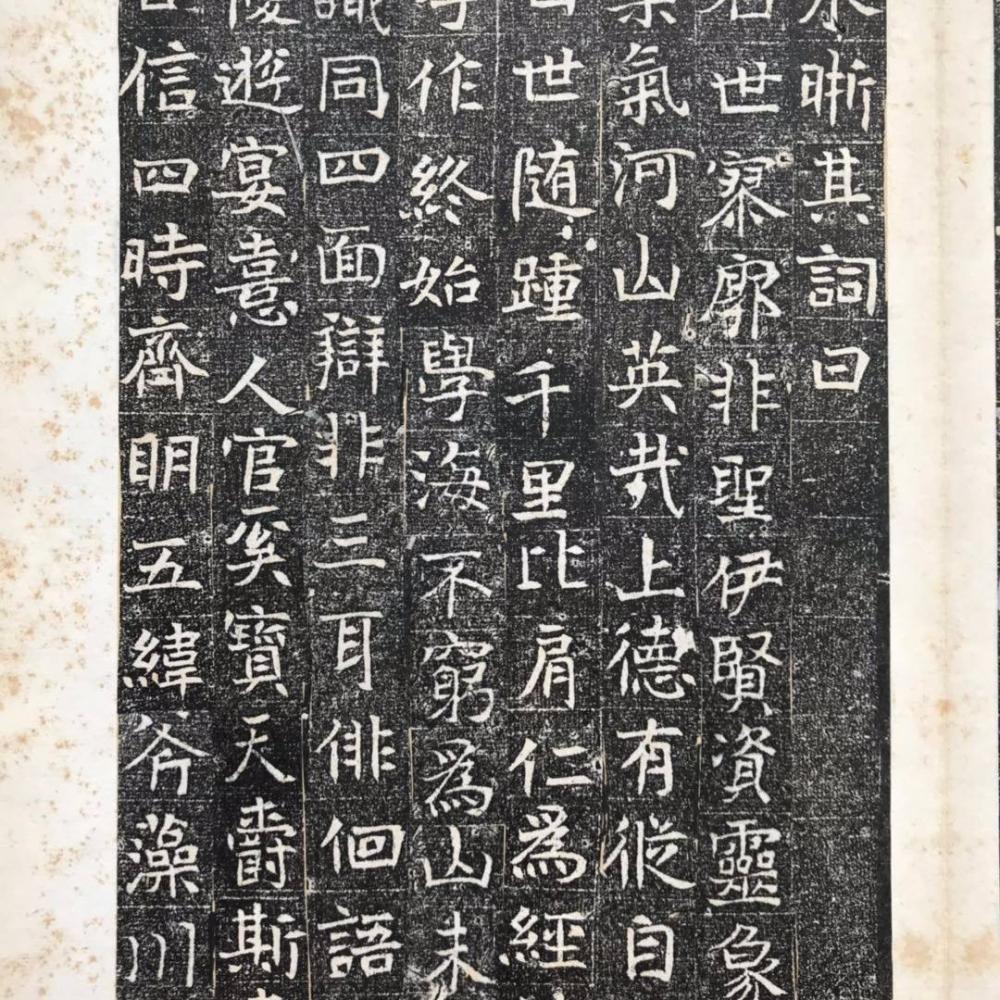 晰其詞曰
世寥廓非聖伊賢資靈象
氣河山英哉上德有從自
世随踵千里比肩仁爲經
作終始學海不窮爲山未
識同四面辯非三耳俳佪語
遊宴憙人官奚寶天爵斯
信四時齊明五緯斧藻川